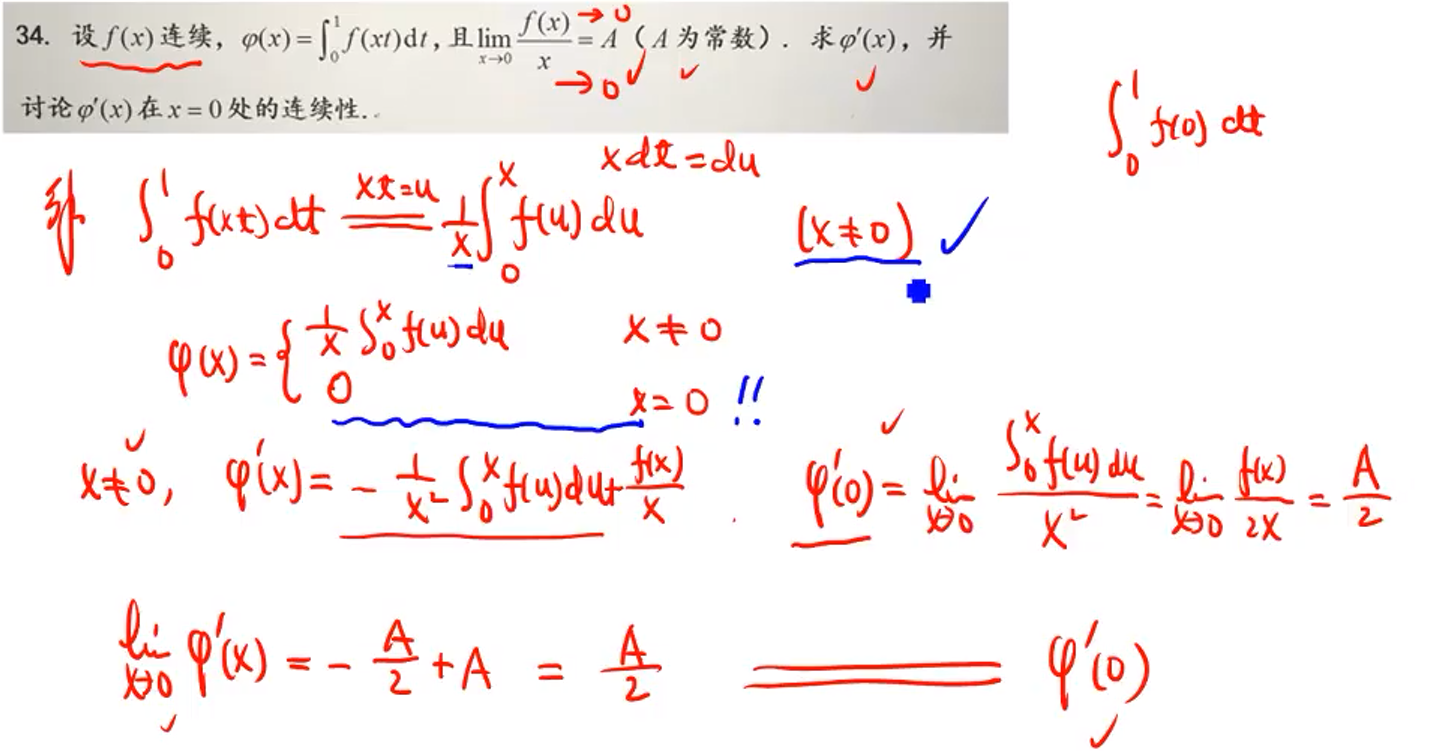 34. 设 f(x) 连续, φ(x)=∫₀¹ f(xt)dt, 且 lim_{x→0} f(x)/x = A (A 为常数). 求 φ′(x), 并
→0
→0
讨论 φ′(x) 在 x=0 处的连续性.
∫₀¹ f(0) dt
xdt=du
解 ∫₀¹ f(xt)dt ══ xt=u 1/x ∫₀ˣ f(u)du (x≠0)
φ(x)={ 1/x ∫₀ˣ f(u)du x≠0
0 x=0 !!
x≠0, φ′(x)= - 1/x² ∫₀ˣ f(u)du + f(x)/x . φ′(0)= lim_{x→0} ∫₀ˣ f(u)du / x² = lim_{x→0} f(x)/2x = A/2
lim_{x→0} φ′(x) = - A/2 + A = A/2 ══ φ′(0)